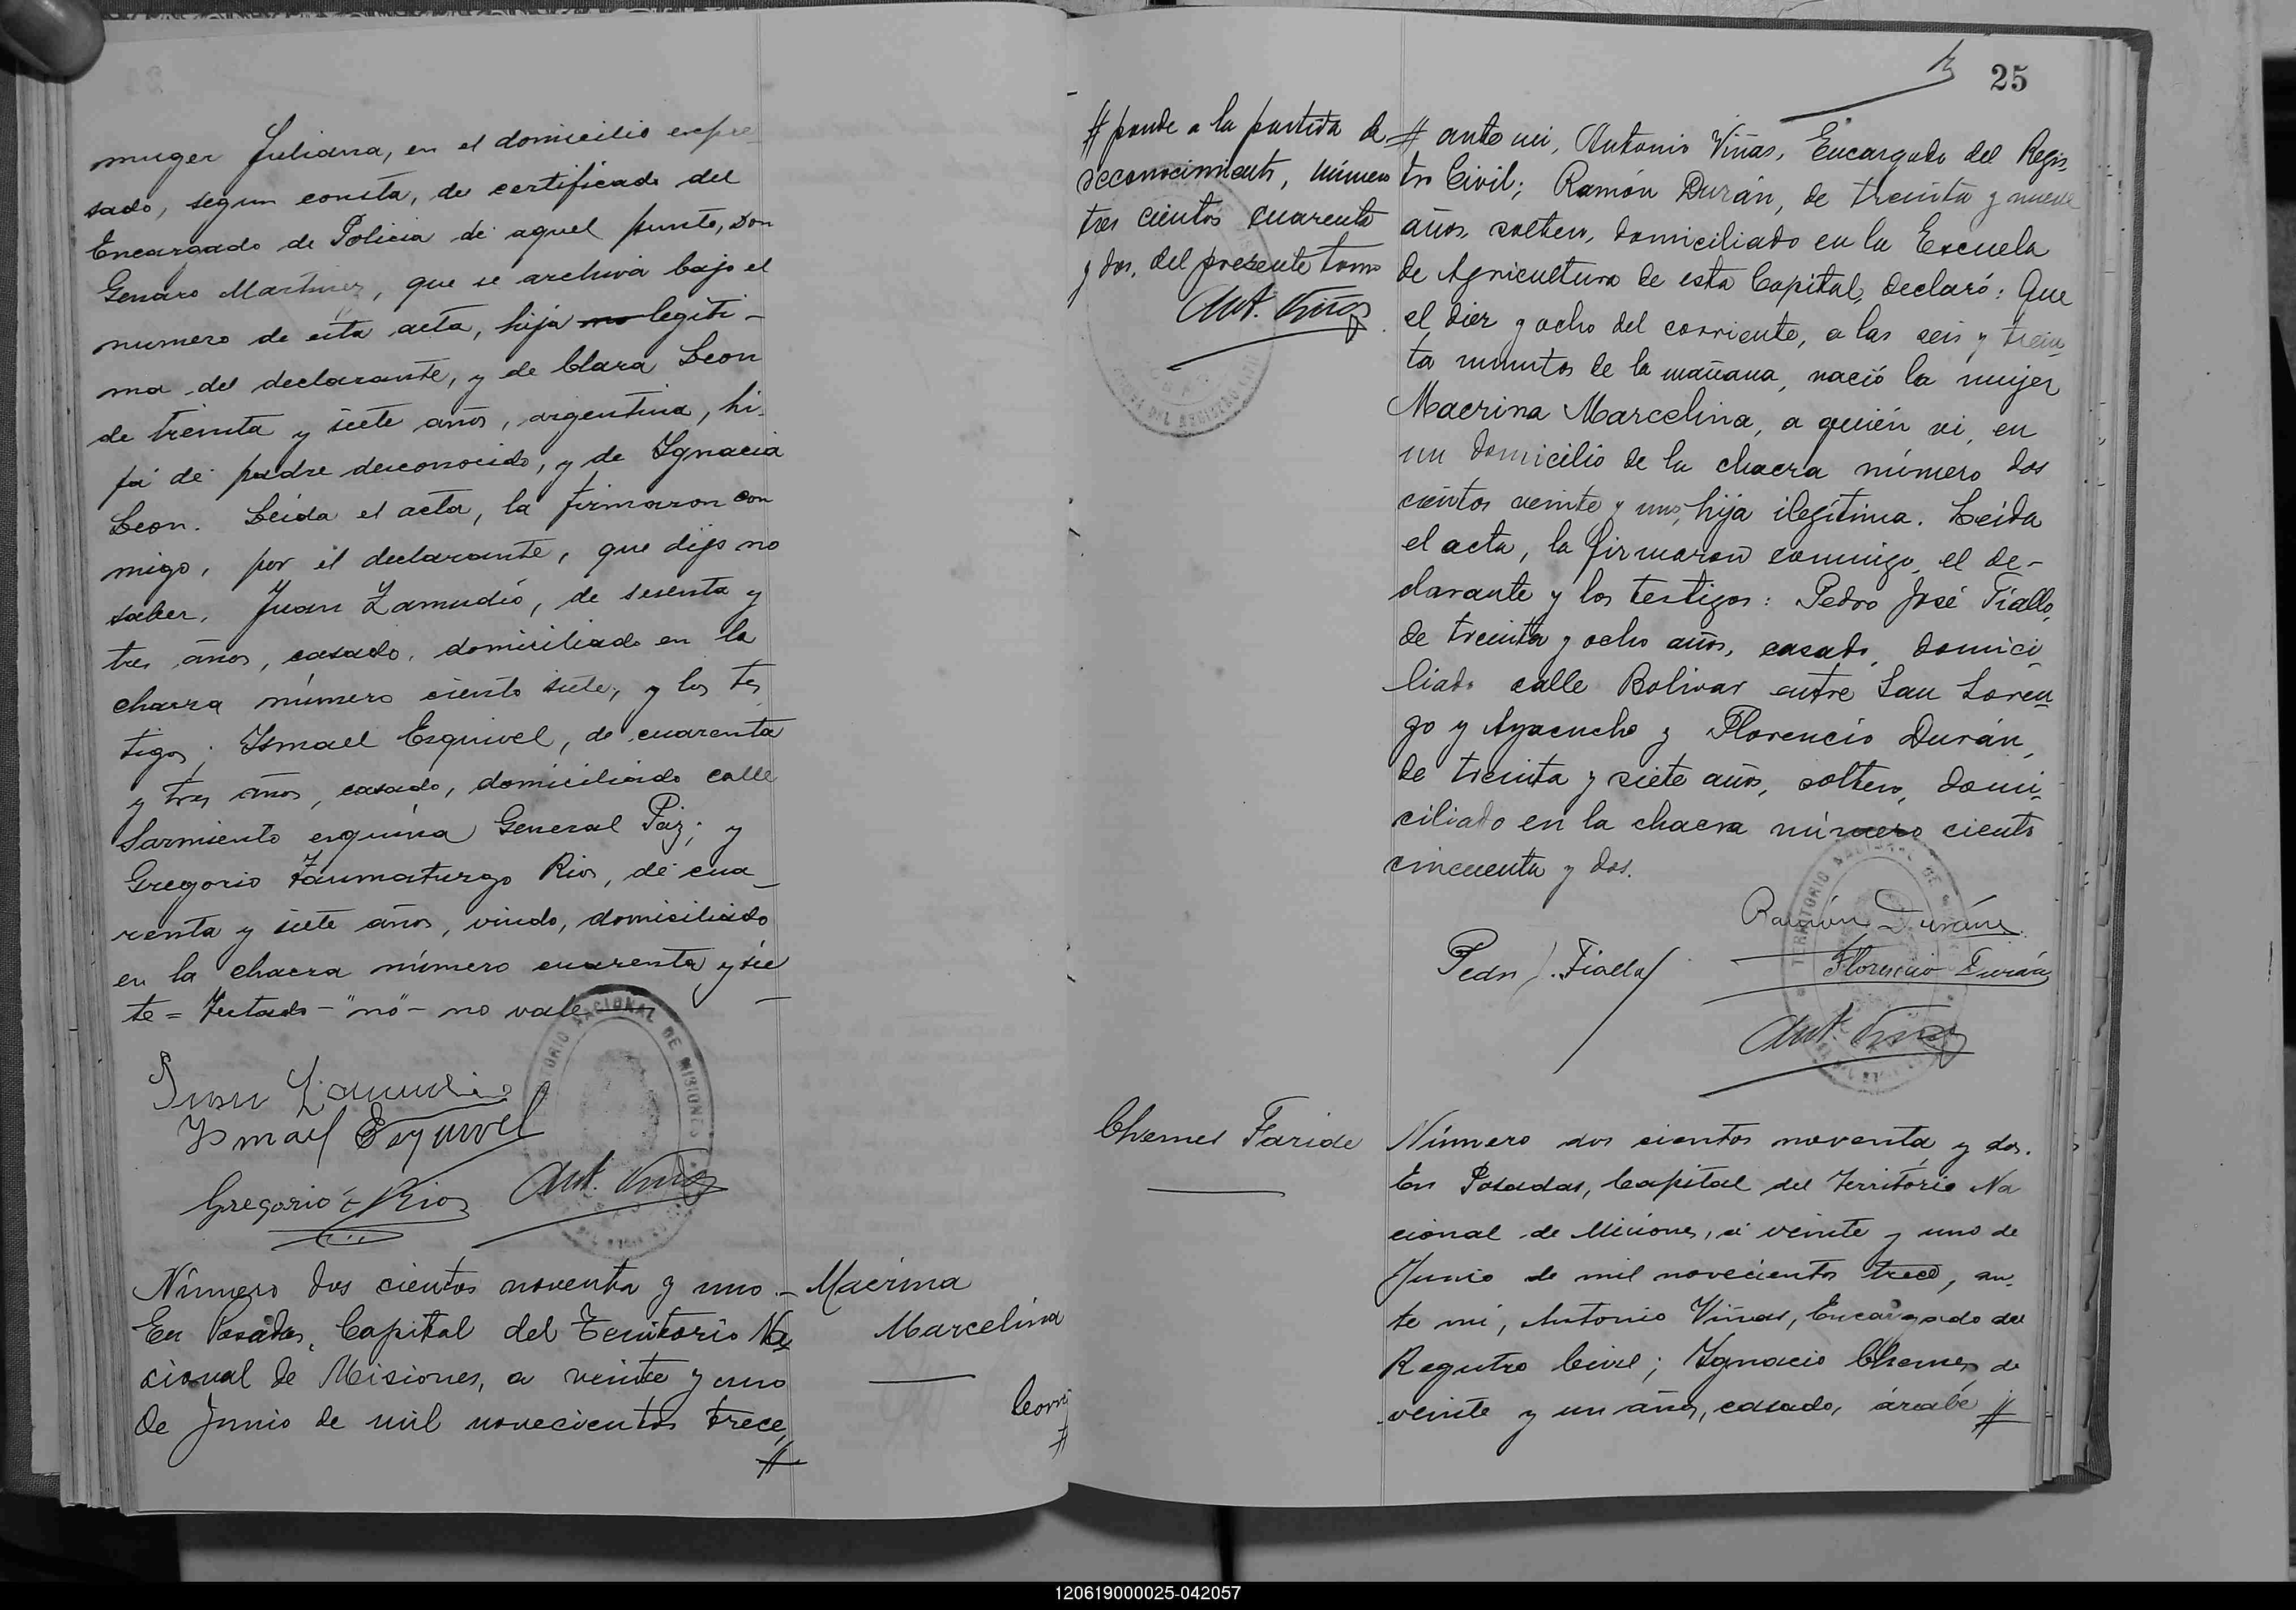 muger Juliana, en el domicilio expre
sado, segun consta, de certificado del
Encargado de Policia de aquel punto, Don
Genaro Martinez, que se archiva bajo el
numero de esta acta, hija no legiti-
ma del declarante, y de Clara Leon
de treinta y siete años, argentina, hi-
ja de padre desconocido, y de Ygnacia
Leon. Leida el acta, la firmaron con
migo, por el declarante, que dijo no
saber, Juan Zamudio, de sesenta y
tres años, casado, domiciliado en la
chacra número ciento siete, y los tes
tigos; Ysmael Esquivel, de cuarenta
y tres años, casado, domiciliado calle
Sarmiento esquina General Paz; y
Gregorio Taumaturgo Rios, de cua-
renta y siete años, viudo, domiciliado
en la chacra número cuarenta y sie
te = Testado - "no" - no vale -
TERRITORIO NACIONAL DE MISIONES
Juan Zamudio
Ysmael Esquivel
Gregorio T Rios Ant. Viñas
Número dos cientos noventa y uno -
En Posadas, Capital del Territorio Na
cional de Misiones, a veinte y uno
de Junio de mil novecientos trece,
#
Macrina
Marcelina
Corres
#
25
# ponde a la partida de
reconocimiento, número
tres cientos cuarenta
y dos, del presente tomo
Ant. Viñas
# ante mi, Antonio Viñas, Encargado del Regis
tro Civil; Ramón Durán, de treinta y nueve
años, soltero, domiciliado en la Escuela
de Agricultura de esta Capital, declaró: Que
el diez y ocho del corriente, a las seis y trein
ta minutos de la mañana, nació la mujer
Macrina Marcelina, a quién vi, en
un domicilio de la chacra número dos
cientos veinte y uno, hija ilegítima. Leida
el acta, la firmaron conmigo, el de-
clarante y los testigos: Pedro José Fiallo,
de treinta y ocho años, casado, domici
liado calle Bolivar entre San Loren
zo y Ayacucho y Florencio Durán,
de treinta y siete años, soltero, domi
ciliado en la chacra número ciento
cincuenta y dos.
Ramón Durán
Pedro J. Fiallo
Florencio Durán
Ant. Viñas
Chemes Faride
Número dos cientos noventa y dos.
En Posadas, Capital del Territorio Na
cional de Misiones, á veinte y uno de
Junio de mil novecientos trece, an-
te mi, Antonio Viñas, Encargado del
Registro Civil; Ygnacio Chemes, de
veinte y un años, casado, árabe #
120619000025-042057